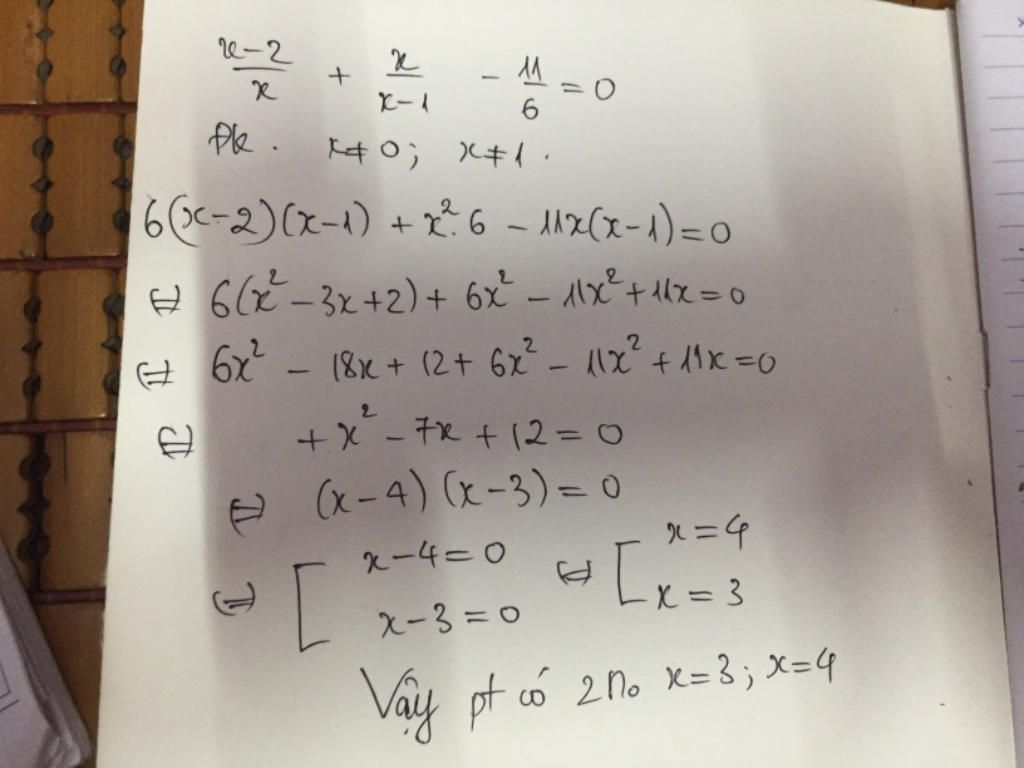 (x-2)/x + x/(x-1) - 11/6 = 0
Đk. x≠0; x≠1.
6(x-2)(x-1) + x².6 - 11x(x-1) = 0
⇔ 6(x² - 3x + 2) + 6x² - 11x² + 11x = 0
⇔ 6x² - 18x + 12 + 6x² - 11x² + 11x = 0
⇔ + x² - 7x + 12 = 0
⇔ (x-4)(x-3) = 0
⇔ [ x-4=0 ⇔ [ x=4
x-3=0 x=3
Vậy pt có 2 no x=3; x=4